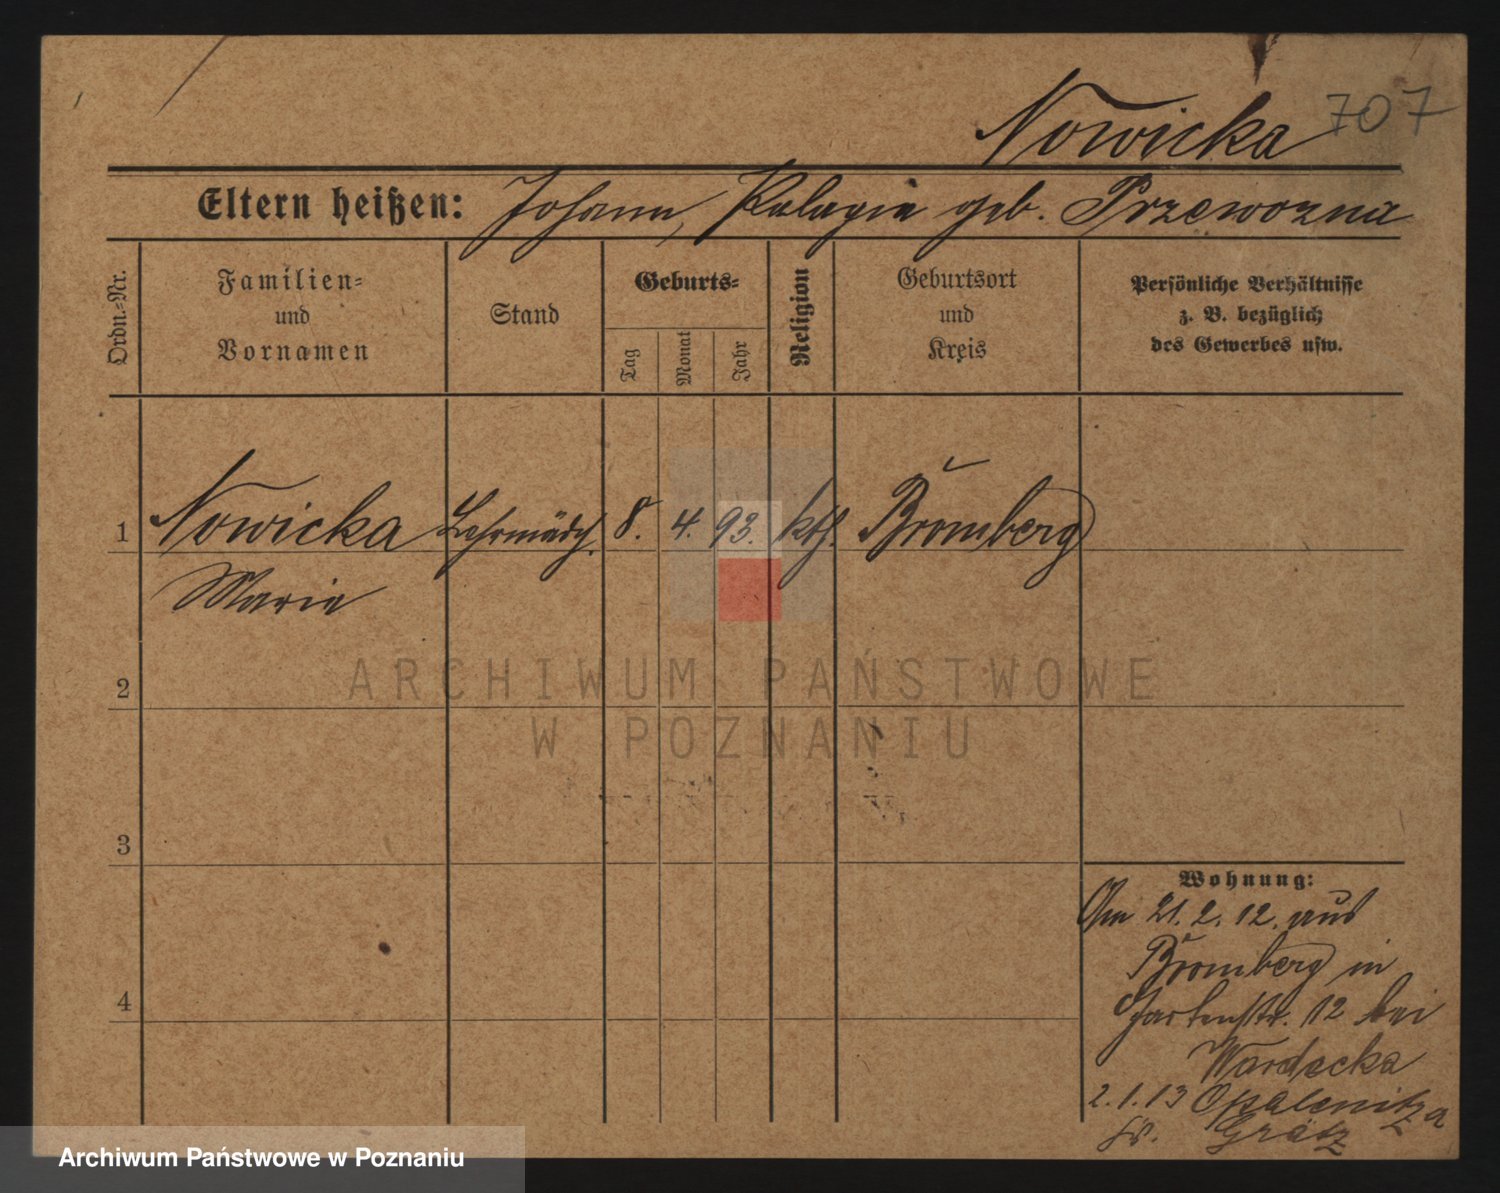 Nowicka 707
Eltern heißen: Johann, Pelagia geb. Przewozna
Ordn.-Nr.
Familien-
und
Vornamen
Stand
Geburts-
Tag
Monat
Jahr
Religion
Geburtsort
und
Kreis
Persönliche Verhältnisse
z. B. bezüglich
des Gewerbes usw.
1 Nowicka Lehrmädch. 8. 4. 93. kth. Bromberg
Marie
2
ARCHIWUM PAŃSTWOWE
W POZNANIU
3
Wohnung:
Am 21. 2. 12. aus
Bromberg in
4
Gartenstr. 12 bei
Wardecka
2. 1. 13 Opalenitza
Grätz
Archiwum Państwowe w Poznaniu